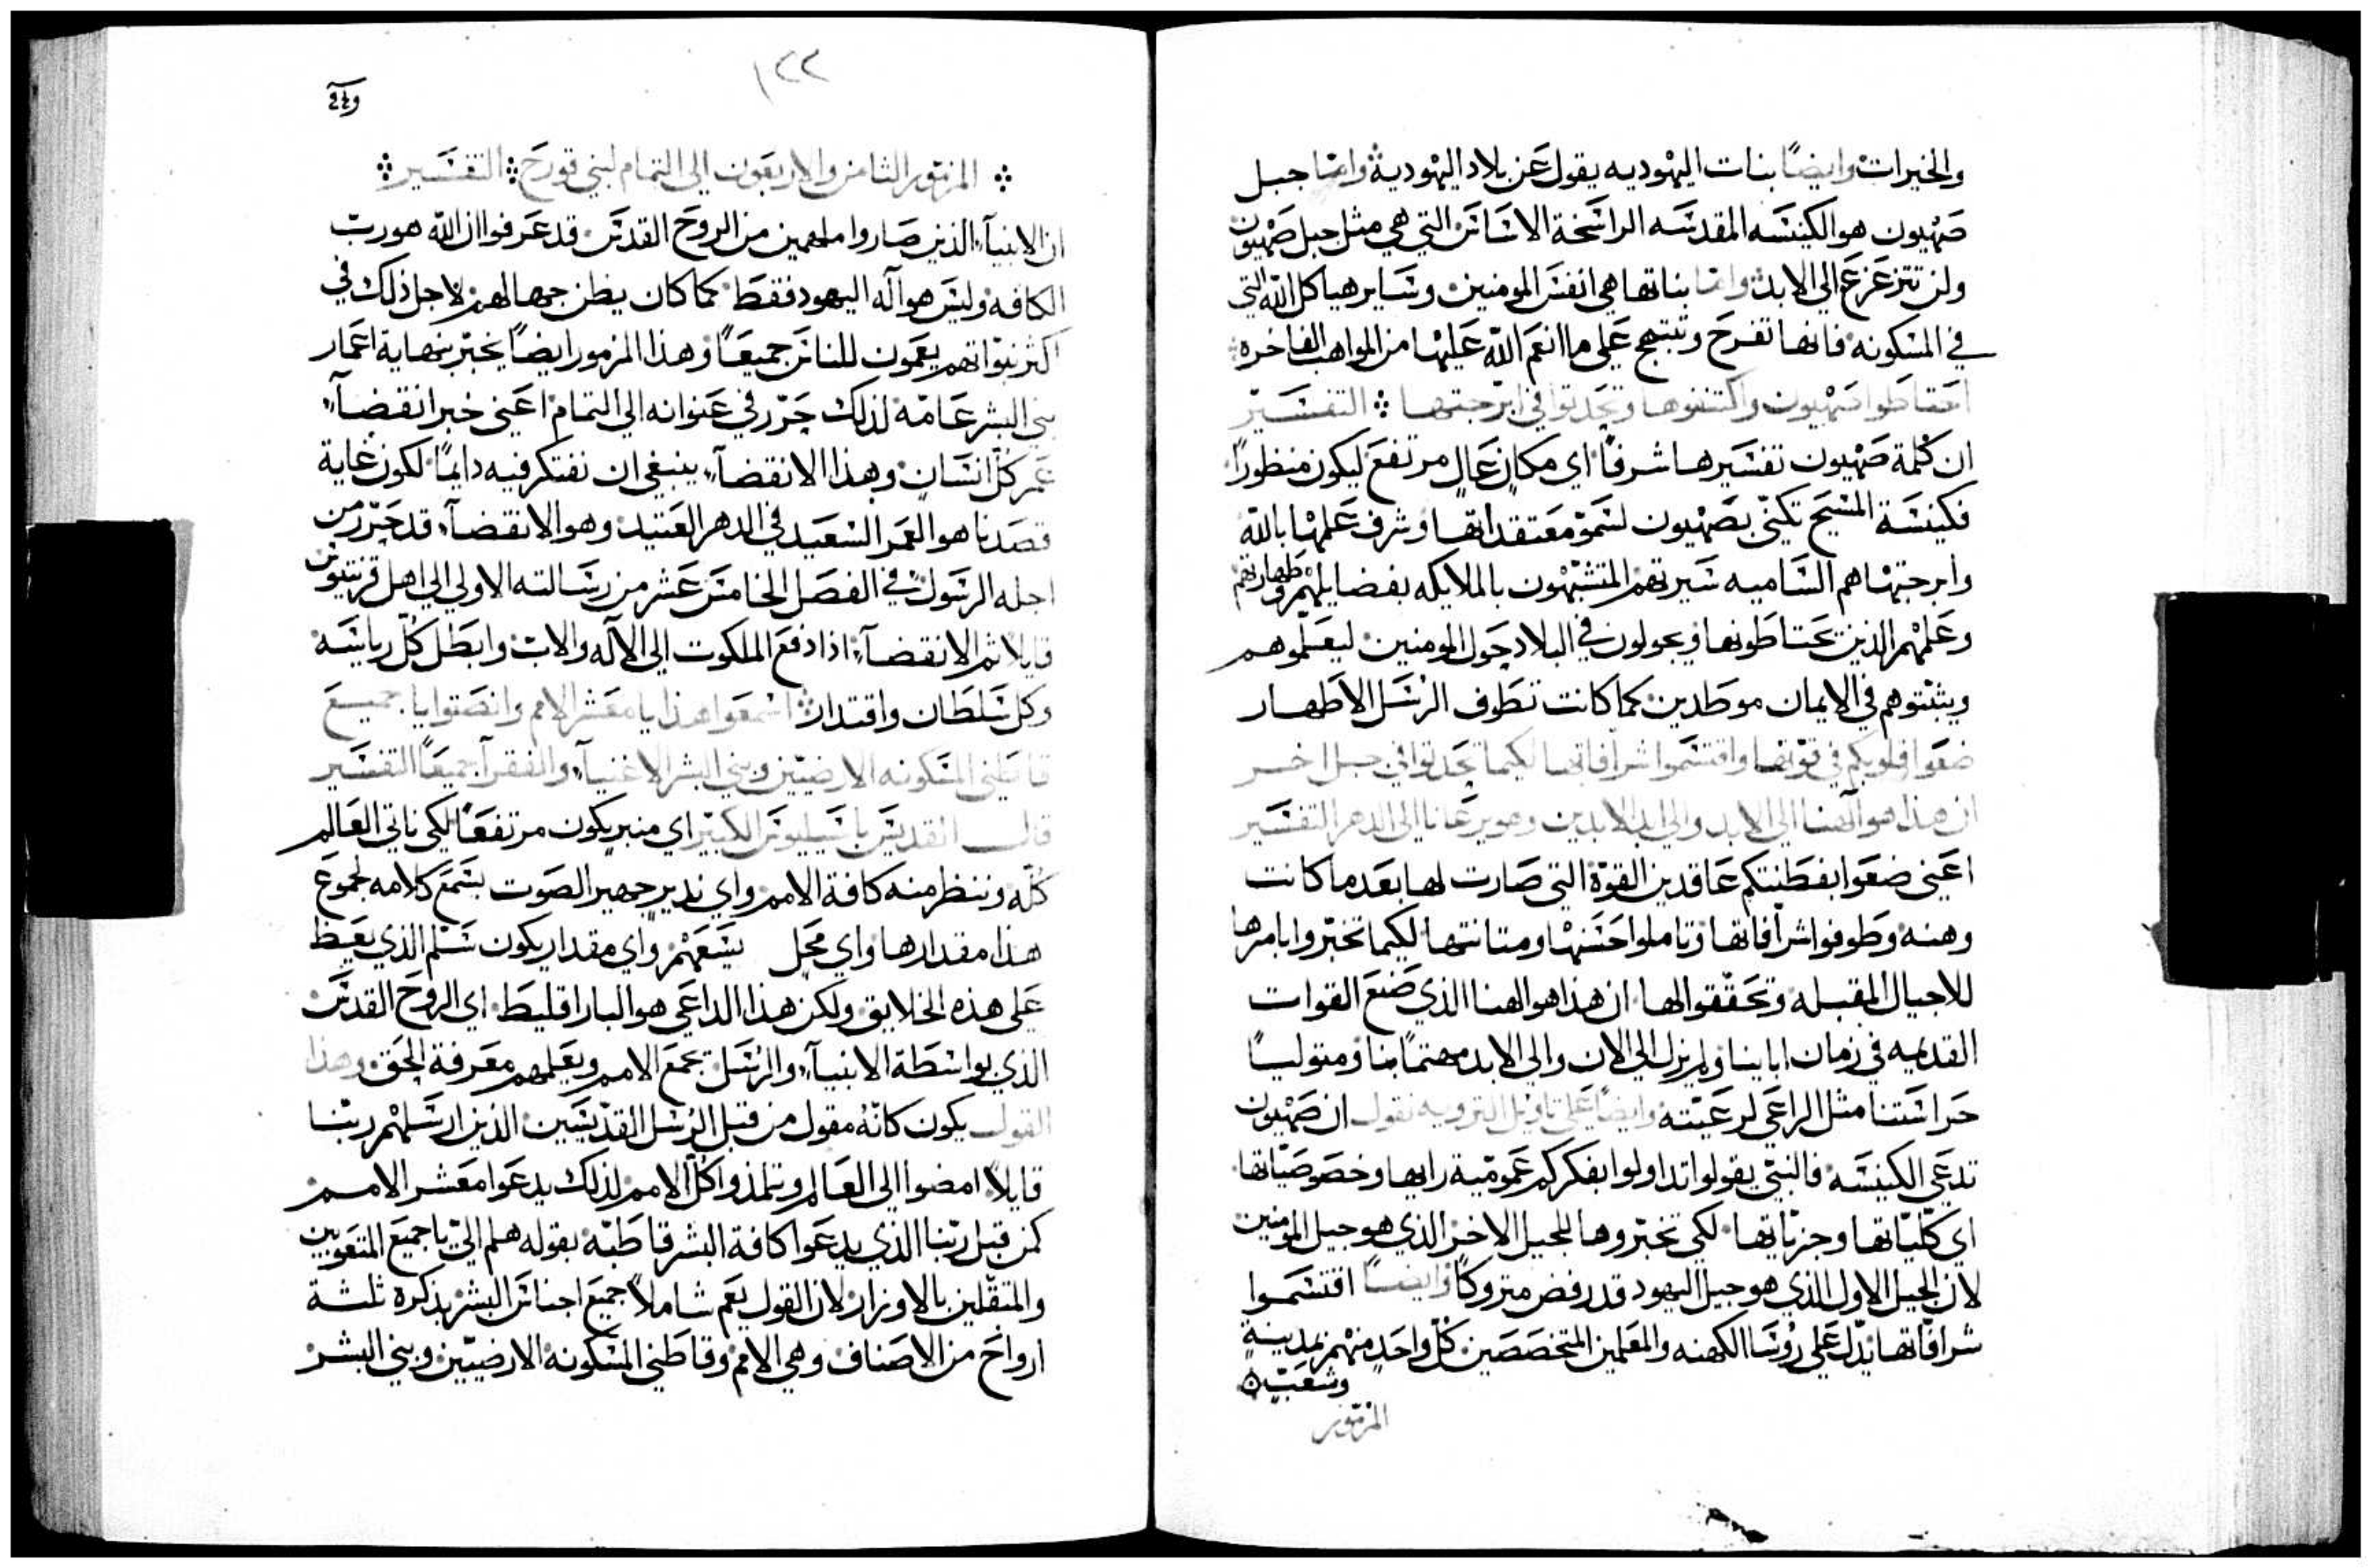 والخيرات وايضًا بنات اليهوديه يقول عن بلاد اليهودية وامّا جبل
صهيون هو الكنيسه المقدسه الراسخة الاساس التي هي مثل جبل صهيون
ولن تتزعزع الى الابد وامّا بناتها هي انفس المومنين وساير هياكل الله التي
في المسكونه فانها تفرح وتبتهج على ما انعم الله عليها من المواهب الفاخره
احتاطوا صهيون واكتنفوها وتحدثوا في ابرجتها التفسير
ان كلمة صهيون تفسيرها شرفًا اي مكان عال مرتفع ليكون منظورًا
فكنيسة المسيح تكنّى بصهيون لسمو معتقداتها وشرف علمها بالله
وابرجتها هم السّاميه سيرتهم المتشبّهون بالملايكه بفضايلهم وطهارتهم
وعلمهم الذين يحتاطونها ويجولون في البلاد حول المومنين ليعلّموهم
ويثبّتوهم في الايمان موطدين كما كانت تطوف الرسل الاطهار
ضعوا قلوبكم في قوّتها واقتسموا شرافاتها لكيما تحدثوا في جيل اخر
ان هذا هو آلهنا الى الابد والى ابد الابدين وهو يرعانا الى الدهر التفسير
اعني ضعوا بفطنتكم عاقدين القوّة التي صارت لها بعدما كانت
وهنه وطوفوا شرافاتها وتاملوا حسنها ومتانتها لكيما تخبّروا بامرها
للاجيال المقبله وتحقّقوا لها ان هذا هو الهنا الذي صنع القوات
القديمه في زمان ابابنا ولم يزل الى الان والى الابد مهتمًا بنا ومتوليًا
حراستنا مثل الراعي لرعيّته وايضًا على تاويل التروييه نقول ان صهيون
تدعى الكنيسه فالنبيّ يقول تداولوا بفكركم عموميّة رايها وخصوصيّاتها
اي كلّيّاتها وجزياتها لكي تخبّروها للجيل الاخر الذي هو جيل المومنين
لان الجيل الاول الذي هو جيل اليهود قد رفض متروكًا وايضًا اقتسموا
شرافاتها تدلّ على رؤسا الكهنه والمعلمين المتخصصين كلّ واحد منهم بمدينة
وشعبٍ
المزمور
١٢٢
المزمور الثامن والاربعون الى التمام لبني قورح التفسير
ان الانبيآء الذين صاروا ملهمين من الروح القدس قد عرفوا ان الله هو ربّ
الكافه وليس هو آله اليهود فقط كما كان يظن جهالهم لاجل ذلك في
اكثر نبوّاتهم يعمون للناس جميعًا وهذا المزمور ايضًا يخبّر بنهاية اعمار
بني البشر عامّه لذلك حرّر في عنوانه الى التمام اعني خبر انقضآء
عمر كل انسان وهذا الانقضآء ينبغي ان نفتكر فيه دايمًا لكون غاية
قصدنا هو العمر السعيد في الدهر العتيد وهو الانقضآء قد حرّر من
اجله الرسول في الفصل الخامس عشر من رسالته الاولى الى اهل قرنتيوس
قايلا ثم الانقضآء اذا دفع الملكوت الى الاله والاب وابطل كلّ رياسه
وكل سلطان واقتدار اسمعوا هذا يا معشر الامم وانصتوا يا جميع
قاطني المسكونه الارضيّين وبني البشر الاغنيآء والفقرآء جميعًا التفسير
قال القديس باسيليوس الكبير اي منبر يكون مرتفعًا لكي ناتي العالم
كلّه وننظر منه كافة الامم واي نديرجهير الصوت يسمع كلامه لجموع
هذا مقدارها واي محل يسعهم واي مقدار يكون سلم الذي يعظ
على هذه الخلايق ولكن هذا الداعي هو البارقليط اي الروح القدس
الذي بواسطة الانبيآء والرسل تجمع الامم ويعلمهم معرفة الحق وهذا
القول يكون كانّه مقول من قبل الرسل القدّيسين الذين ارسلهم ربّنا
قايلا امضوا الى العالم وتلمذوا كل الامم لذلك يدعوا معشر الامم
كمن قبل ربّنا الذي يدعوا كافة البشر قاطبّه بقوله هلم اليّ يا جميع المتعوبين
والمتقّلين بالاوزار لان القول يعم شاملًا جميع اجناس البشر بذكره ثلثة
ازواج من الاصناف وهي الامم وقاطني المسكونه الارضيّين وبني البشر